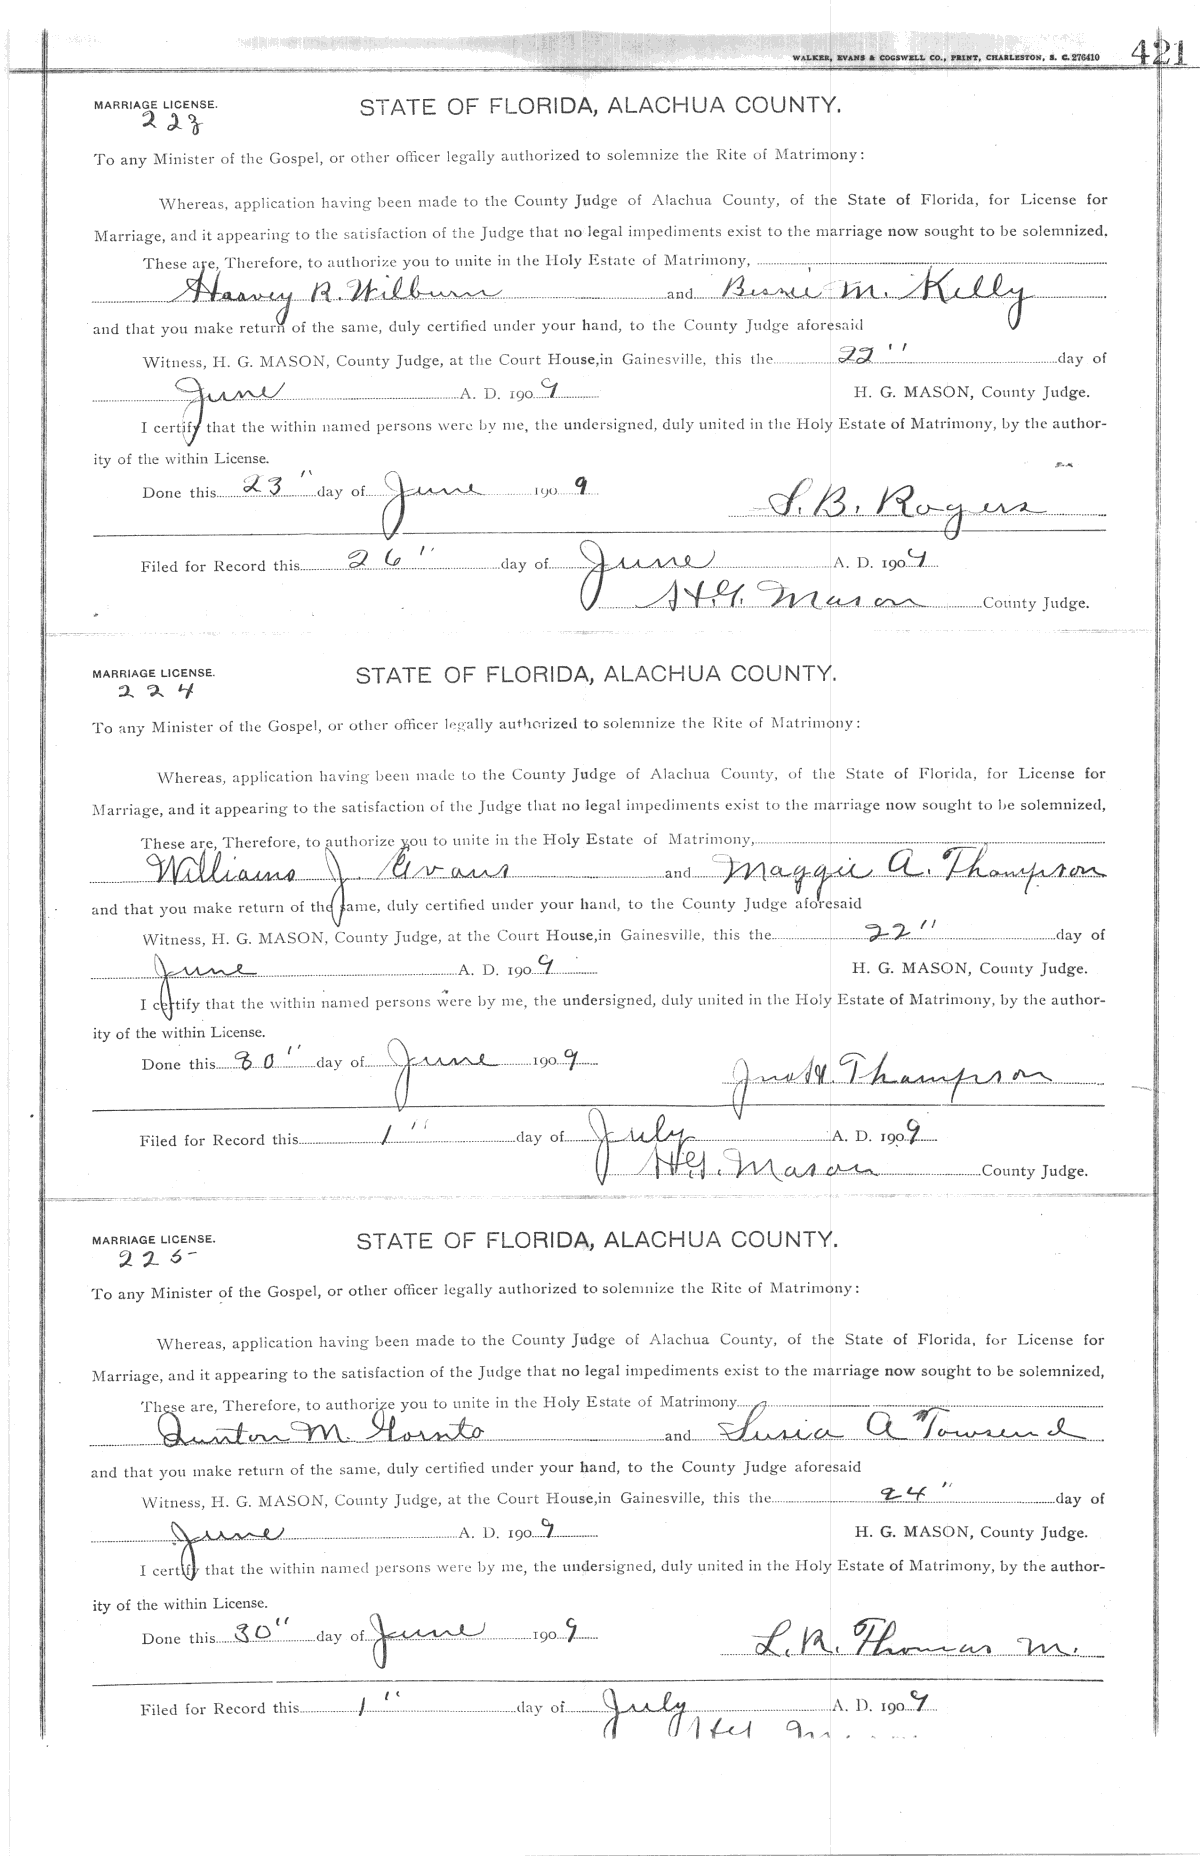 WALKER, EVANS & COGSWELL CO., PRINT, CHARLESTON, S. C. 276410
421
MARRIAGE LICENSE.
STATE OF FLORIDA, ALACHUA COUNTY.
223
To any Minister of the Gospel, or other officer legally authorized to solemnize the Rite of Matrimony:
Whereas, application having been made to the County Judge of Alachua County, of the State of Florida, for License for
Marriage, and it appearing to the satisfaction of the Judge that no legal impediments exist to the marriage now sought to be solemnized,
These are, Therefore, to authorize you to unite in the Holy Estate of Matrimony,
Harvey R. Wilburn and Bessie M. Kelly
and that you make return of the same, duly certified under your hand, to the County Judge aforesaid
Witness, H. G. MASON, County Judge, at the Court House, in Gainesville, this the 22" day of
June A. D. 1909 H. G. MASON, County Judge.
I certify that the within named persons were by me, the undersigned, duly united in the Holy Estate of Matrimony, by the author-
ity of the within License.
Done this 23" day of June 1909
S. B. Rogers
Filed for Record this 26" day of June A. D. 1909
H. G. Mason County Judge.
MARRIAGE LICENSE.
STATE OF FLORIDA, ALACHUA COUNTY.
224
To any Minister of the Gospel, or other officer legally authorized to solemnize the Rite of Matrimony:
Whereas, application having been made to the County Judge of Alachua County, of the State of Florida, for License for
Marriage, and it appearing to the satisfaction of the Judge that no legal impediments exist to the marriage now sought to be solemnized,
These are, Therefore, to authorize you to unite in the Holy Estate of Matrimony,
Williams J. Evans and Maggie A. Thompson
and that you make return of the same, duly certified under your hand, to the County Judge aforesaid
Witness, H. G. MASON, County Judge, at the Court House, in Gainesville, this the 22" day of
June A. D. 1909 H. G. MASON, County Judge.
I certify that the within named persons were by me, the undersigned, duly united in the Holy Estate of Matrimony, by the author-
ity of the within License.
Done this 30" day of June 1909
Jno H. Thompson
Filed for Record this 1" day of July A. D. 1909
H. G. Mason County Judge.
MARRIAGE LICENSE.
STATE OF FLORIDA, ALACHUA COUNTY.
225
To any Minister of the Gospel, or other officer legally authorized to solemnize the Rite of Matrimony:
Whereas, application having been made to the County Judge of Alachua County, of the State of Florida, for License for
Marriage, and it appearing to the satisfaction of the Judge that no legal impediments exist to the marriage now sought to be solemnized,
These are, Therefore, to authorize you to unite in the Holy Estate of Matrimony
Quinton M. Gornto and Susia A Towsend
and that you make return of the same, duly certified under your hand, to the County Judge aforesaid
Witness, H. G. MASON, County Judge, at the Court House, in Gainesville, this the 24" day of
June A. D. 1909 H. G. MASON, County Judge.
I certify that the within named persons were by me, the undersigned, duly united in the Holy Estate of Matrimony, by the author-
ity of the within License.
Done this 30" day of June 1909
L. R. Thomas M.
Filed for Record this 1" day of July A. D. 1909